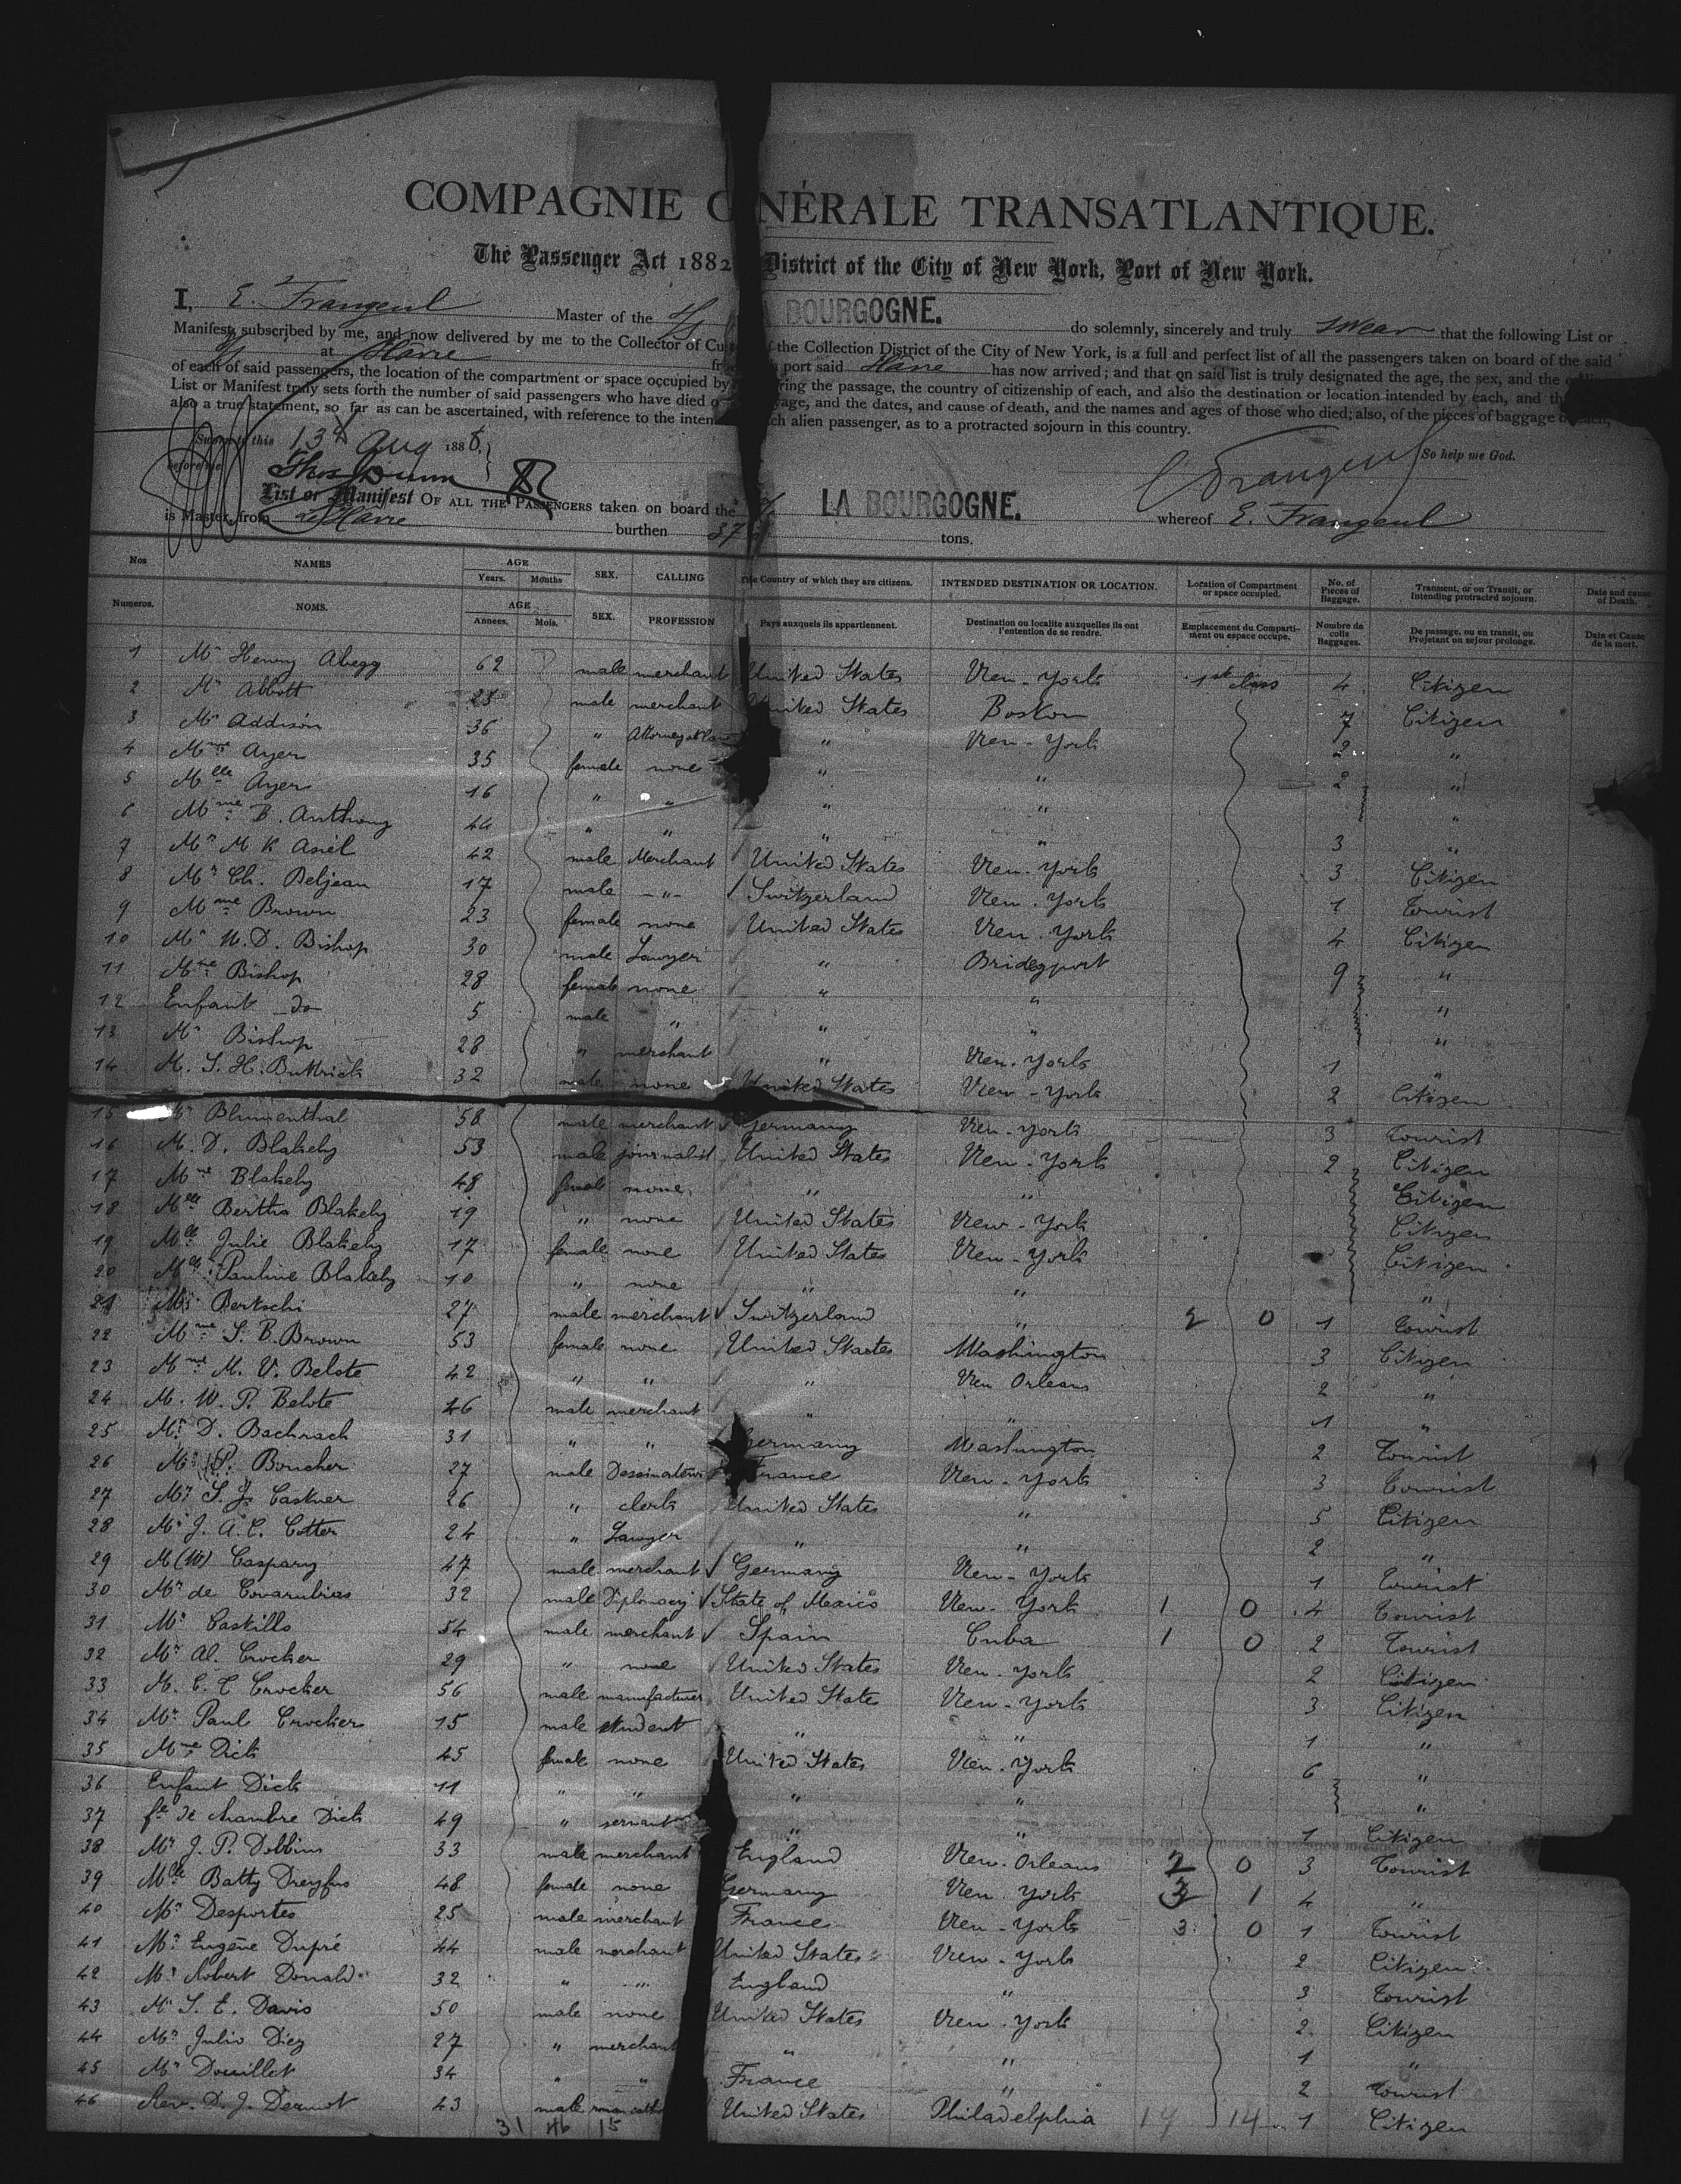 COMPAGNIE G NÉRALE TRANSATLANTIQUE.
The Passenger Act 1882 District of the City of New York, Port of New York.
I, E. Frangeul Master of the S/S A BOURGOGNE. do solemnly, sincerely and truly swear that the following List or
Manifest, subscribed by me, and now delivered by me to the Collector of Cu f the Collection District of the City of New York, is a full and perfect list of all the passengers taken on board of the said
at Havre port said Havre has now arrived; and that on said list is truly designated the age, the sex, and the
of each of said passengers, the location of the compartment or space occupied by ring the passage, the country of citizenship of each, and also the destination or location intended by each, and th
List or Manifest truly sets forth the number of said passengers who have died o yage, and the dates, and cause of death, and the names and ages of those who died; also, of the pieces of baggage of each,
also a true statement, so far as can be ascertained, with reference to the inten ch alien passenger, as to a protracted sojourn in this country.
Sworn to this 13th Aug 1888. So help me God.
before me Thos Dunn E Frangeul
List or Manifest OF ALL THE PASSENGERS taken on board the LA BOURGOGNE. whereof E. Frangeul
is Master, from Le Havre burthen tons.
Nos NAMES AGE Years. Months SEX. CALLING The Country of which they are citizens. INTENDED DESTINATION OR LOCATION. Location of Compartment or space occupied. No. of Pieces of Baggage. Transient, or on Transit, or Intending protracted sojourn. Date and cause of Death.
Numeros. NOMS. AGE Annees. Mois. SEX. PROFESSION Pays auxquels ils appartiennent. Destination ou localite auxquelles ils ont l'entention de se rendre. Emplacement du Compartiment ou espace occupe. Nombre de colis Baggages. De passage, ou en transit, ou Projetant un sejour prolonge. Date et Cause de la mort.
1 Mr Henry Abegg 62 male merchant United States New-York 1st class 4 Citizen
2 Mr Abbott 25 male merchant United States Boston 7 Citizen
3 Mr Addison 36 " Attorney at law " New-York 2 "
4 Mme Ayer 35 female none " " 2 "
5 Melle Ayer 16 " " " " "
6 Mme B. Anthony 44 " " " " 3 "
7 Mr M K Asiel 42 male Merchant United States New-York 3 Citizen
8 Mr Ch. Beljean 17 male -"- Switzerland New-York 1 Tourist
9 Mme Brown 23 female none United States New-York 4 Citizen
10 Mr N. D. Bishop 30 male Lawyer " Bridegport 9 "
11 Mme Bishop 28 female none " " "
12 Enfant do 5 male " " " "
13 Mr Bishop 28 " merchant " New-York 1 "
14 M. S. H. Buttrick 32 male none United States New-York 2 Citizen
15 Mr Blumenthal 58 male merchant Germany New-York 3 Tourist
16 M. D. Blakely 53 male journalist United States New-York 2 Citizen
17 Mme Blakely 48 female none " " Citizen
18 Melle Bertha Blakely 19 " none United States New-York Citizen
19 Melle Julie Blakely 17 female none United States New-York Citizen
20 Melle Pauline Blakely 10 " none " " "
21 Mr Bertschi 27 male merchant Switzerland " 2 0 1 Tourist
22 Mme S. B. Brown 53 female none United Staates Washington 3 Citizen
23 Mme M. V. Belote 42 " " " New Orleans 2 "
24 M. W. P. Belote 46 male merchant " " 1 "
25 Mr D. Bachrach 31 " " Germany Washington 2 Tourist
26 Mr P. Boucher 27 male Dessinateur France New-York 3 Tourist
27 Mr S. J. Castner 26 " clerk United States " 5 Citizen
28 Mr J. A. C. Cotter 24 " Lawyer " " 2 "
29 M (W) Caspary 47 male merchant Germany New-York 1 Tourist
30 Mr de Covarubias 32 male Diplomacy State of Mexico New-York 1 0 4 Tourist
31 Mr Castillo 54 male merchant Spain Cuba 1 0 2 Tourist
32 Mr Al. Crocker 29 " none United States New-York 2 Citizen
33 M. C. C Crocker 56 male manufacturer United States New-York 3 Citizen
34 Mr Paul Crocker 15 male student " " 1 "
35 Mme Dick 45 female none United States New-York 6 "
36 Enfant Dick 11 " " " " "
37 fe de chambre Dick 49 " servant " " 1 Citizen
38 Mr J. P. Dobbins 33 male merchant England New-Orleans 2 0 3 Tourist
39 Melle Batty Dreyfus 48 female none Germany New York 3 1 4 "
40 Mr Desportes 25 male merchant France New-York 3 0 1 Tourist
41 Mr Eugène Dupré 44 male merchant United States New-York 2 Citizen
42 Mr Robert Donald 32 " " England " 3 Tourist
43 Mr S. E. Davis 50 male none United States New-York 2 Citizen
44 Mr Julio Diez 27 " merchant " " 1 "
45 Mr Douillet 34 " " France " 2 Tourist
46 Rev. D. J. Dermot 43 male roman cath United States Philadelphia 14 14 1 Citizen
31 46 15